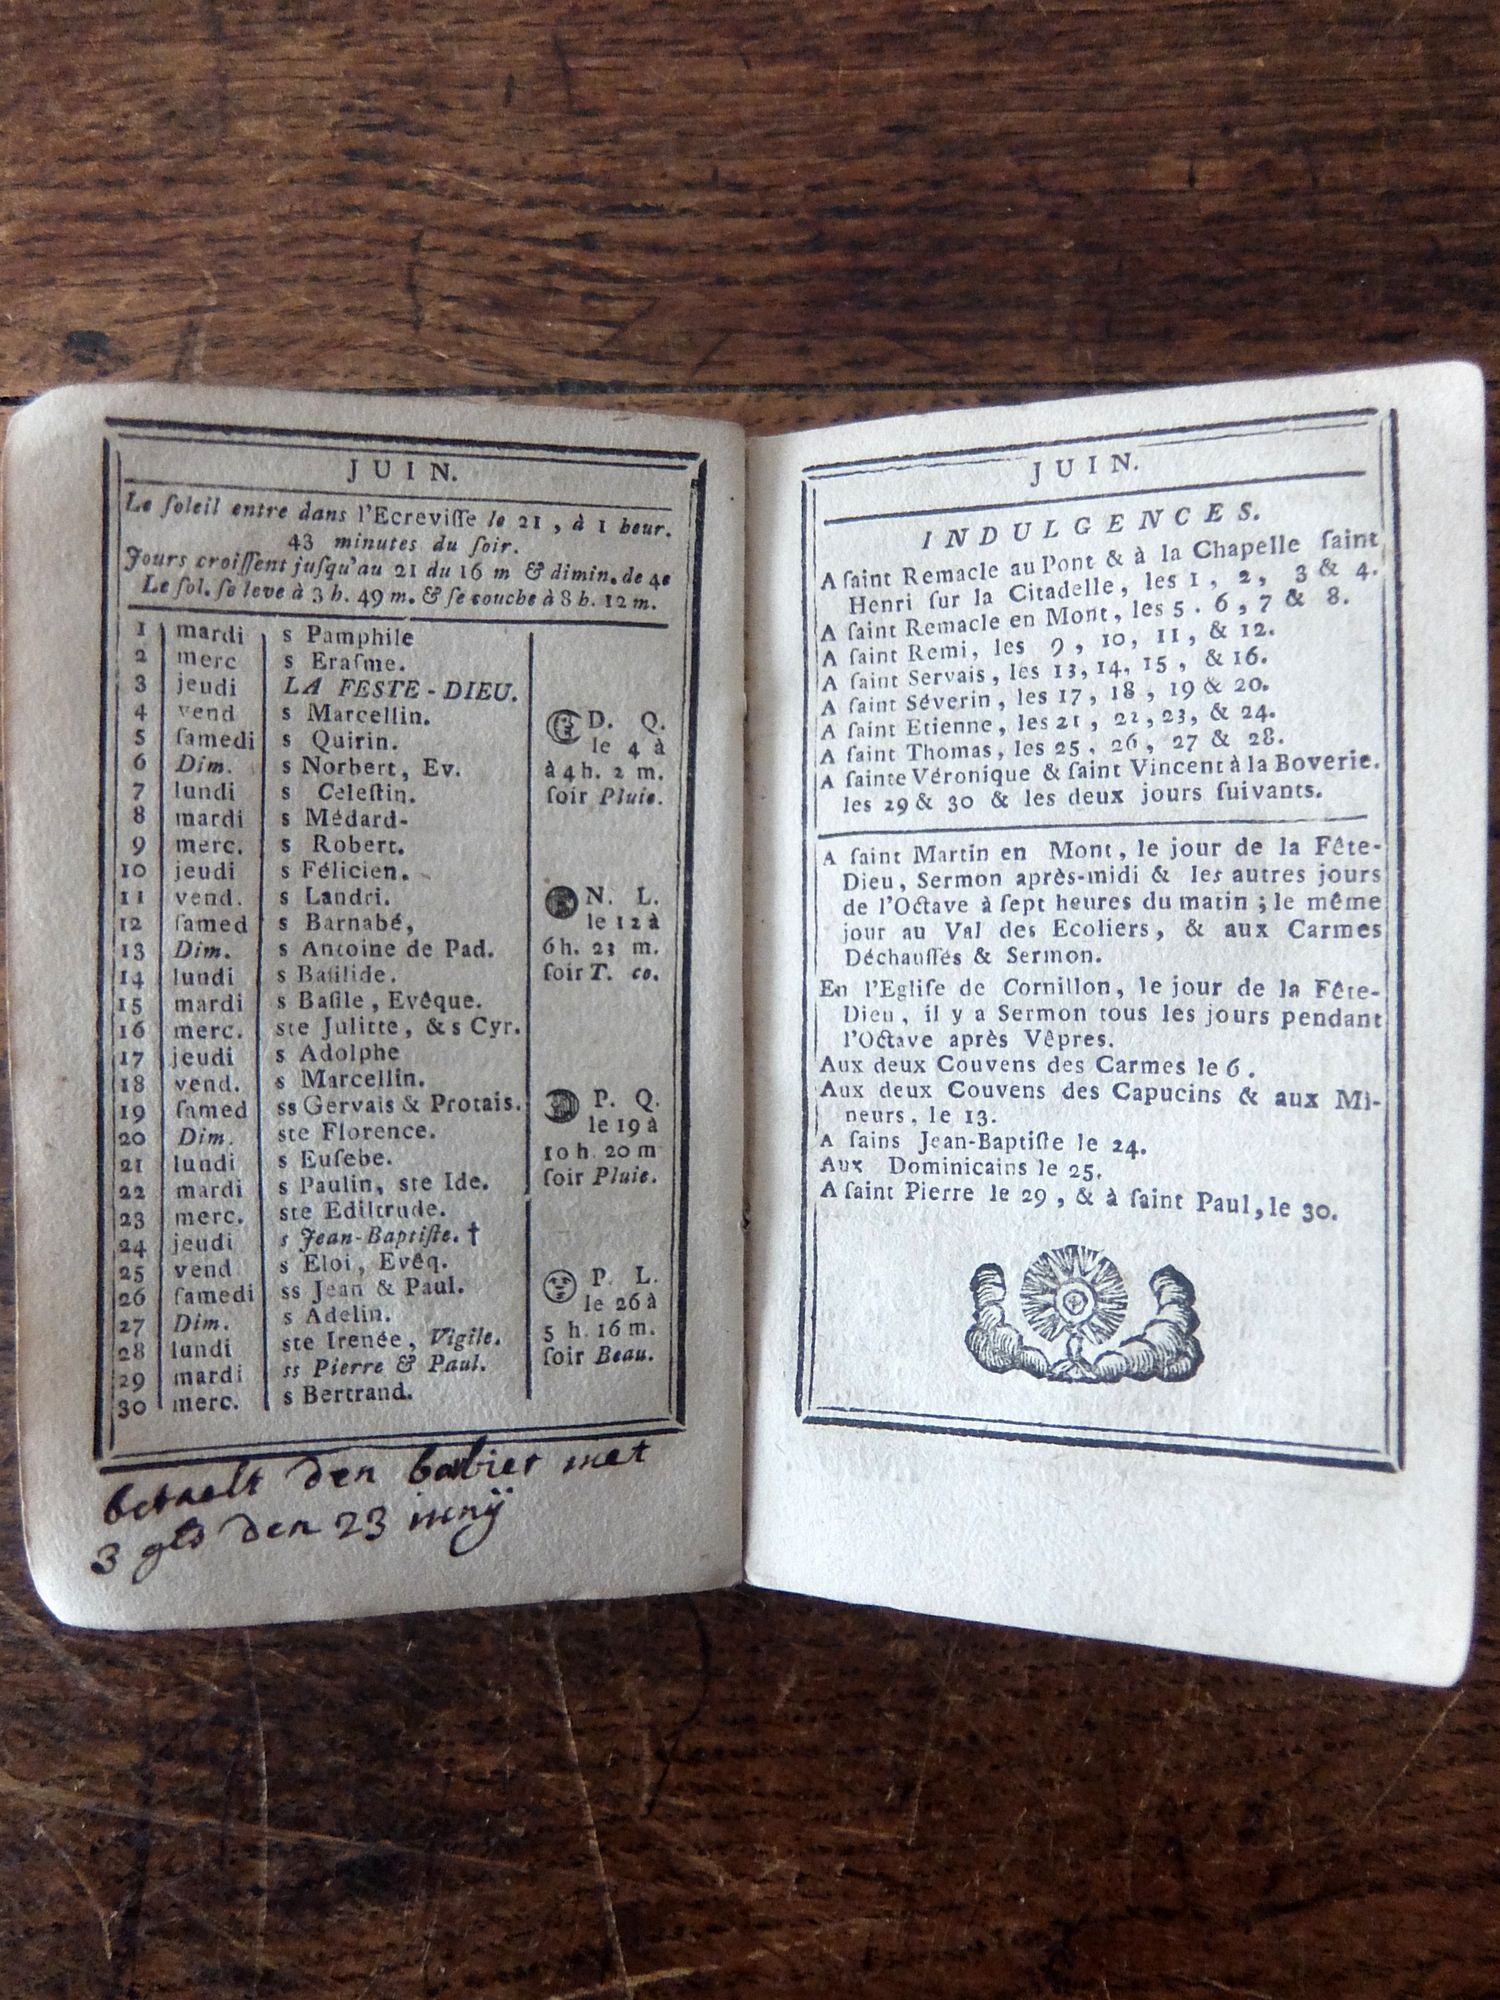 JUIN.
Le ſoleil entre dans l'Ecreviſſe le 21, à 1 heur.
43 minutes du ſoir.
Jours croiſſent juſqu'au 21 du 16 m & dimin. de 4e
Le ſol. ſe leve à 3 h. 49 m. & ſe couche à 8 h. 12 m.
1 mardi s Pamphile
2 merc s Eraſme.
3 jeudi LA FESTE-DIEU.
4 vend s Marcellin.
5 ſamedi s Quirin.
6 Dim. s Norbert, Ev.
7 lundi s Celeſtin.
8 mardi s Médard-
9 merc. s Robert.
10 jeudi s Félicien.
11 vend. s Landri.
12 ſamed s Barnabé,
13 Dim. s Antoine de Pad.
14 lundi s Baſilide.
15 mardi s Baſile, Evêque.
16 merc. ste Julitte, & s Cyr.
17 jeudi s Adolphe
18 vend. s Marcellin.
19 ſamed ss Gervais & Protais.
20 Dim. ste Florence.
21 lundi s Euſebe.
22 mardi s Paulin, ste Ide.
23 merc. ste Ediltrude.
24 jeudi s Jean-Baptiſte. †
25 vend s Eloi, Evêq.
26 ſamedi ss Jean & Paul.
27 Dim. s Adelin.
28 lundi ste Irenée, Vigile.
29 mardi ss Pierre & Paul.
30 merc. s Bertrand.
D. Q.
le 4 à
à 4 h. 2 m.
ſoir Pluie.
N. L.
le 12 à
6 h. 23 m.
ſoir T. co.
P. Q.
le 19 à
10 h. 20 m
ſoir Pluie.
P. L.
le 26 à
5 h. 16 m.
ſoir Beau.
betaelt den babier met
3 gls den 23 iunÿ
JUIN.
INDULGENCES.
A ſaint Remacle au Pont & à la Chapelle ſaint
Henri ſur la Citadelle, les 1, 2, 3 & 4.
A ſaint Remacle en Mont, les 5. 6, 7 & 8.
A ſaint Remi, les 9, 10, 11, & 12.
A ſaint Servais, les 13, 14, 15, & 16.
A ſaint Séverin, les 17, 18, 19 & 20.
A ſaint Etienne, les 21, 22, 23, & 24.
A ſaint Thomas, les 25, 26, 27 & 28.
A ſainte Véronique & ſaint Vincent à la Boverie.
les 29 & 30 & les deux jours ſuivants.
A ſaint Martin en Mont, le jour de la Fête-
Dieu, Sermon après-midi & les autres jours
de l'Octave à ſept heures du matin ; le même
jour au Val des Ecoliers, & aux Carmes
Déchauſſés & Sermon.
En l'Egliſe de Cornillon, le jour de la Fête-
Dieu, il y a Sermon tous les jours pendant
l'Octave après Vêpres.
Aux deux Couvens des Carmes le 6.
Aux deux Couvens des Capucins & aux Mi-
neurs, le 13.
A ſains Jean-Baptiſte le 24.
Aux Dominicains le 25.
A ſaint Pierre le 29, & à ſaint Paul, le 30.